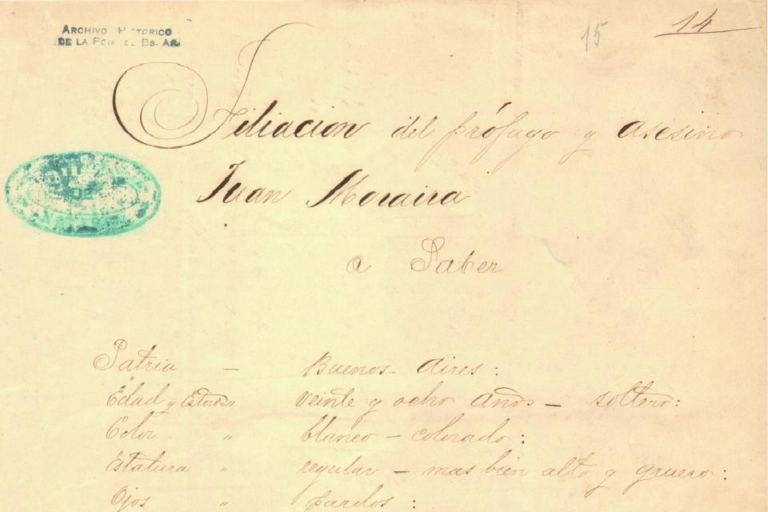 ARCHIVO HISTORICO
DE LA PCIA DE BS. AS.
15
14
Filiacion del prófugo y asesino
Juan Moraira
a Saber
Patria — Buenos Aires:
Edad y Estado " veinte y ocho años — soltero:
Color " blanco — colorado:
Estatura " regular — mas bien alto y grueso:
Ojos " pardos: